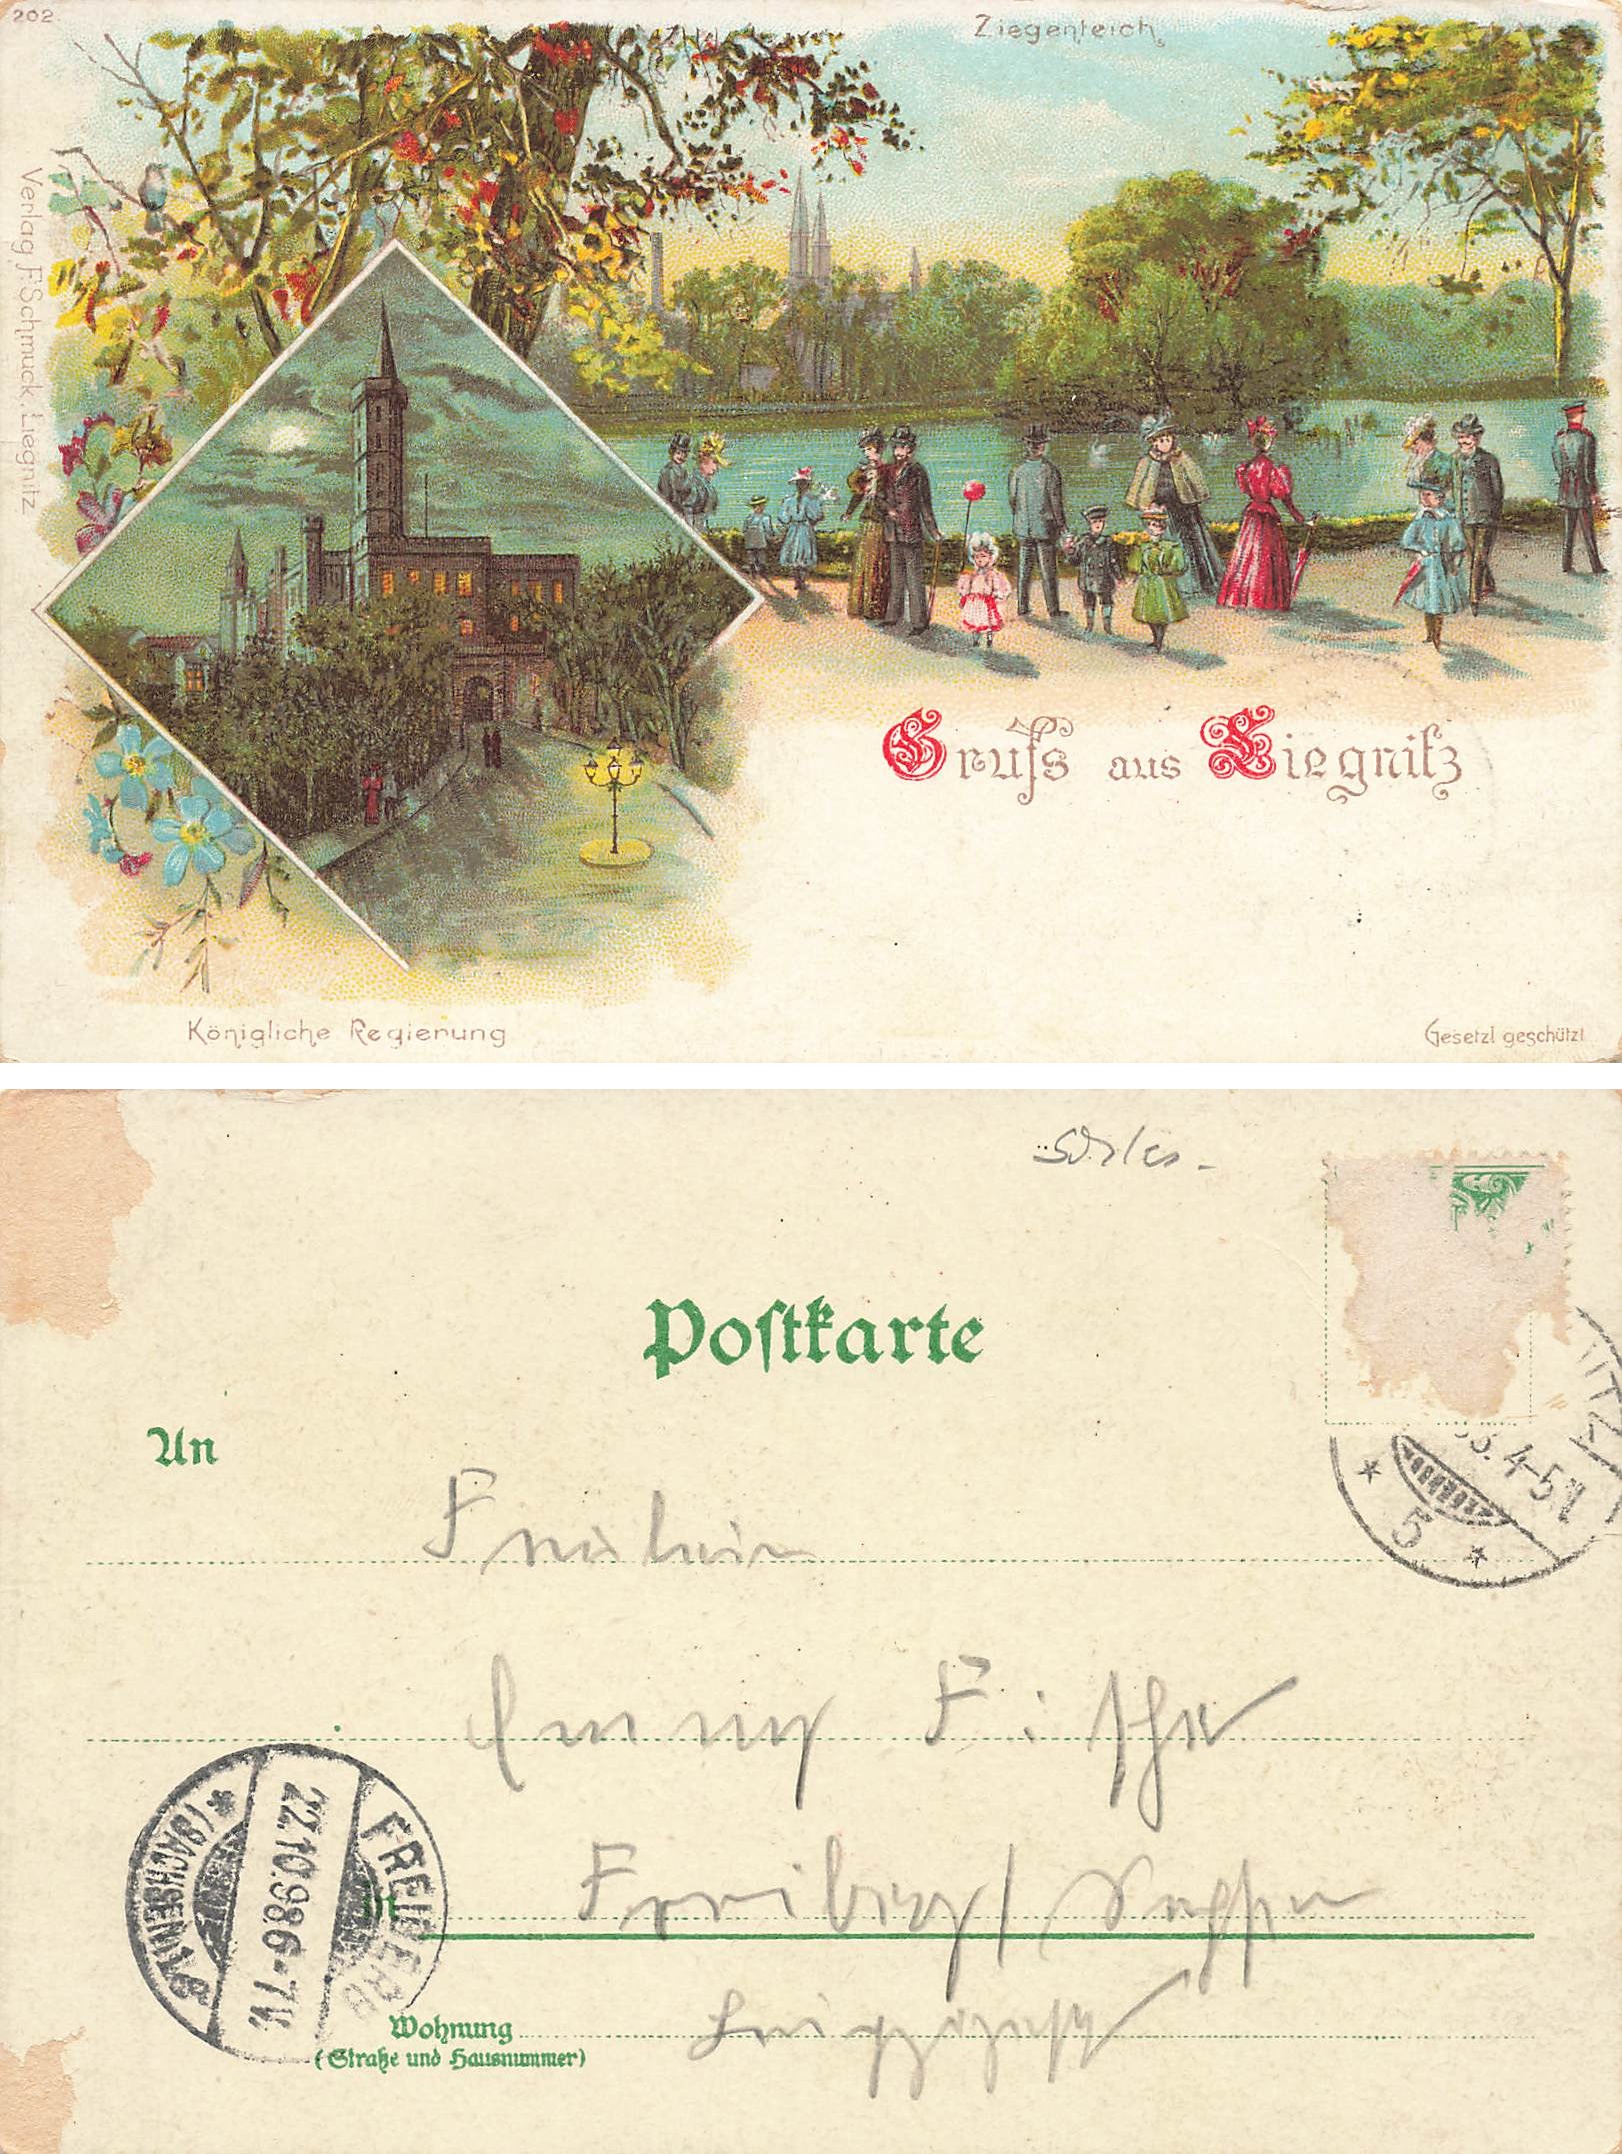 202.
Ziegenteich.
Verlag F.Schmuck Liegnitz
Gruſs aus Liegnitz
Königliche Regierung
Gesetzl geschützt
Poſtkarte
An
Fräulein
Emmy Fischer
FREIBERG
22.10.98.6-7V.
(SACHSEN) 1. g
ITZ
98. 4-5N
5
Freiberg / Sachsen
Wohnung
(Straße und Hausnummer)